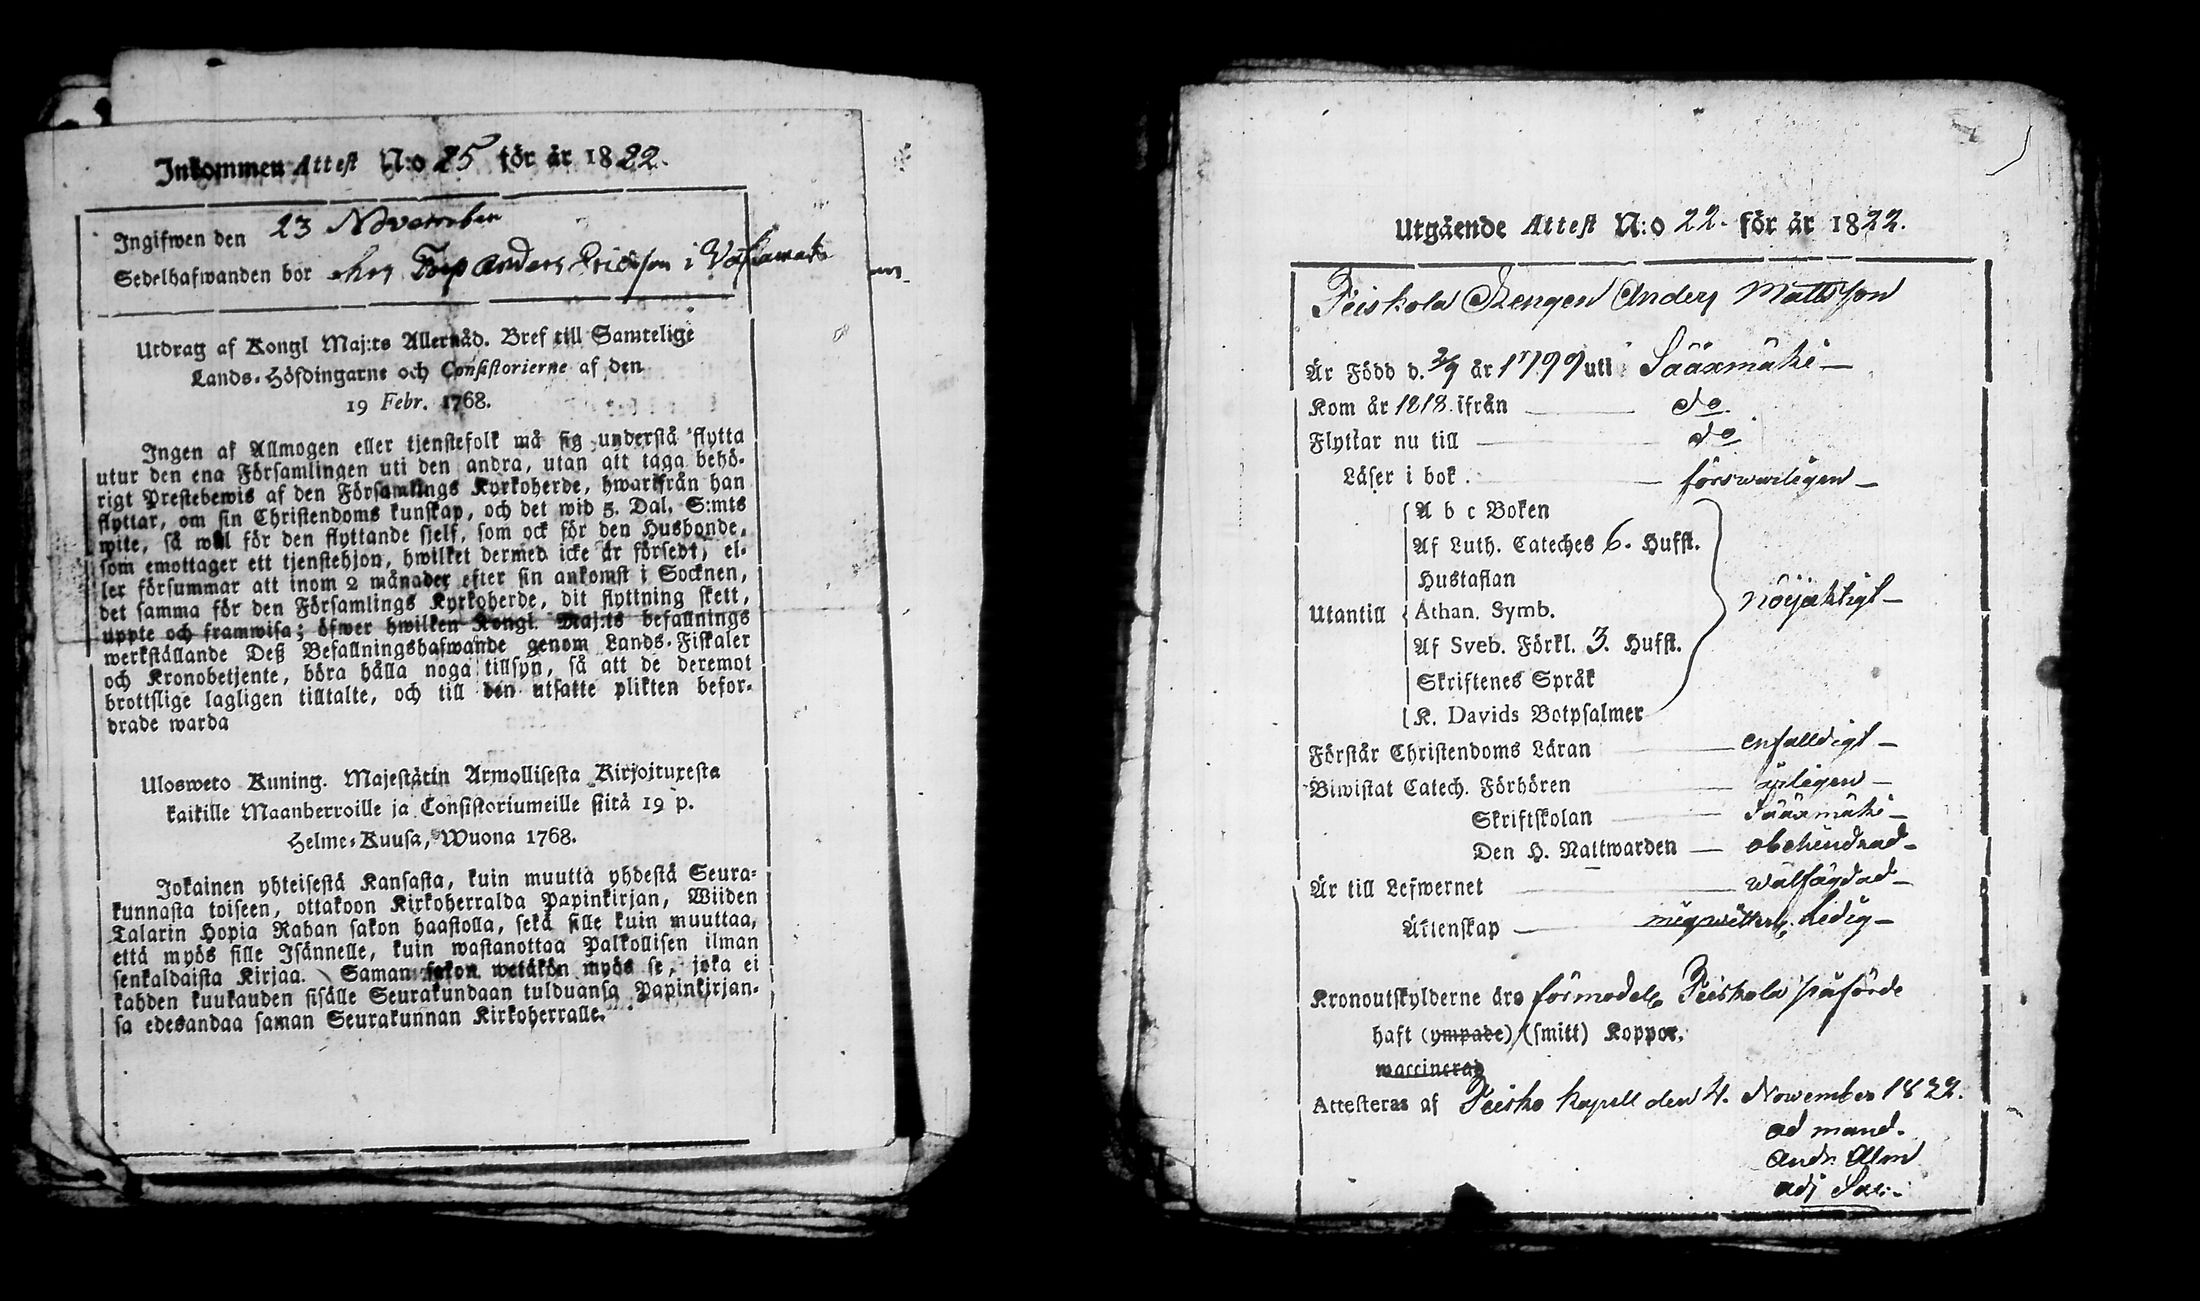 Inkommen Attest N:o 25 för år 1822.
Ingifwen den 23 November
Sedelhafwanden bor hos Torp Anders Ericsson i
Utdrag af Kongl Maj:ts Allernåd. Bref till Samtelige
Lands-Höfdingarne och Consistorierne af den
19 Febr. 1768.
Ingen af Allmogen eller tjenstefolk må sig understå flytta
utur den ena Församlingen uti den andra, utan att taga behö-
rigt Prestebewis af den Församlings Kyrkoherde, hwarifrån han
flyttar, om sin Christendoms kunskap, och det wid 5. Dal. S:mts
wite, så wäl för den flyttande sjelf, som ock för den Husbonde,
som emottager ett tjenstehjon, hwilket dermed icke är försedt, el-
ler försummar att inom 2 månader efter sin ankomst i Socknen,
det samma för den Församlings Kyrkoherde, dit flyttning skett,
uppte och framwisa; öfwer hwilken Kongl. Maj:ts befallnings
werkställande Deß Befallningshafwande genom Lands-Fiskaler
och Kronobetjente, böra hålla noga tillsyn, så att de deremot
brottslige lagligen tilltalte, och till den utsatte plikten befor-
drade warda
Ulosweto Kuning. Majestätin Armollisesta Kirjoituxesta
kaikille Maanherroille ja Consistoriumeille siitä 19 p.
Helme-Kuusa, Wuona 1768.
Jokainen yhteisestä Kansasta, kuin muutta yhdestä Seura-
kunnasta toiseen, ottakoon Kirkoherralda Papinkirjan, Wiiden
Talarin Hopia Rahan sakon haastolla, sekä sille kuin muuttaa,
että myös sille Isännelle, kuin wastanottaa Palkollisen ilman
senkaldaista Kirjaa. Saman sakon wetäkön myös se, joka ei
kahden kuukauden sisälle Seurakundaan tulduansa Papinkirjan-
sa edesandaa saman Seurakunnan Kirkoherralle.
Utgående Attest N:o 22. för år 1822.
Peiskola Drengen Anders Mattsson
Är Född d. 2/9 år 1799 uti Sääxmäki
Kom år 1818 ifrån do
Flyttar nu till do
Läser i bok. försvarligen
A b c Boken
Af Luth. Cateches 6. Hufst.
Hustaflan
Utantill Athan. Symb. nöijaktigt
Af Sveb. Förkl. 3. Hufst.
Skriftenes Språk
K. Davids Botpsalmer
Förstår Christendoms Läran enfalldigt
Biwistat Catech. Förhören årligen
Skriftskolan Sääxmäki
Den H. Nattwarden obehindrad
Är till Lefwernet wälfrägdad
Äktenskap mig witterl. Ledig
Kronoutskylderne äro förmodel. Peiskola påförde
haft (ympade) (smitt) Koppor.
waccinerad
Attesteras af Kapell den 4. November 1822.
ad mand.
Andr. Alm
adj Sac: